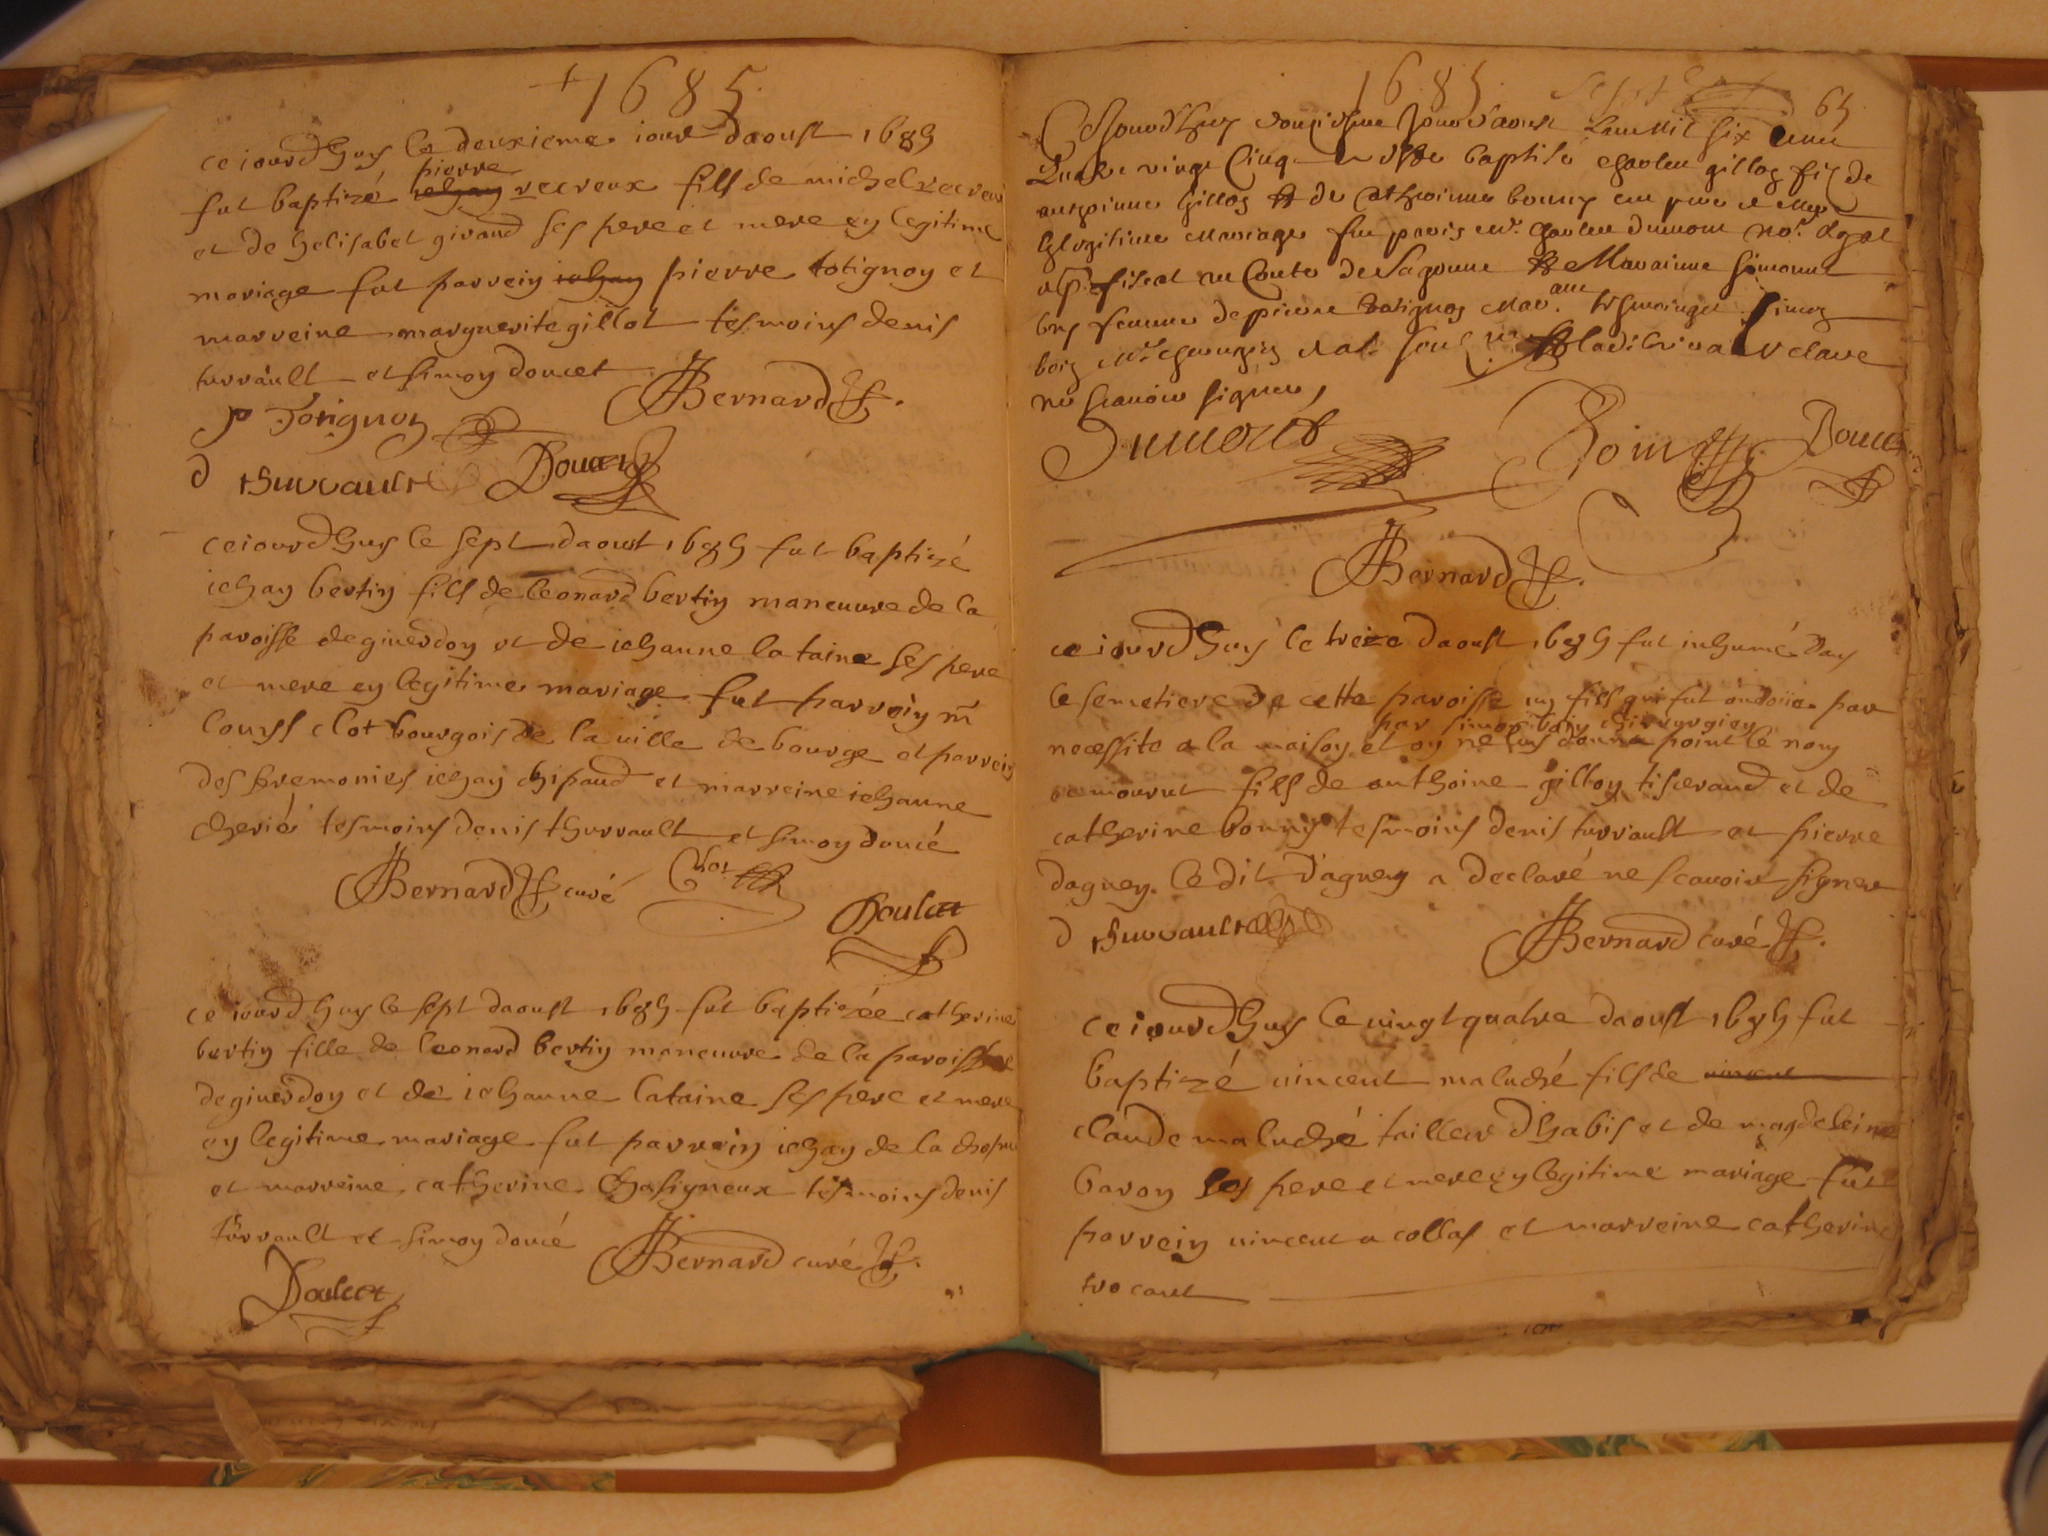 +1685
ce iourdhuy le deuxieme iour daoust 1685
pierre
fut baptizé jehan recreux fills de michel recreux
et de helisabet giraud ses pere et mere en legitime
mariage fut parrein jehan pierre totignon et
marreine marguerite gillot tesmoins denis
turrault et simon doucet JBernard
p Totignon
d thurrault Doucet
ce iourdhuy le sept daoust 1685 fut baptizé
iehan bertin fills de leonard bertin maneuvre de la
paroisse de giverdon et de iehanne lataine ses pere
et mere en legitime mariage fut parrein mr
louys clot bourgois de la ville de bourge et parrein
des seremonies iehan chipaud et marreine iehanne
cherié tesmoins denis thurrault et simon doucé
JBernard curé Clot
Doulcet
ce iourdhuy le sept daoust 1685 fut baptizée catherine
bertin fille de leonard bertin maneuvre de la paroisse
de giverdon et de iehanne lataine ses pere et mere
en legitime mariage fut parrein iehan de la
et marreine catherine Chasigneux tesmoins denis
turrault et simon doucé JBernard curé
Doulcet
1685 65
Cejourdhuy douziesme jour daoust Lan Mil six Cens
Quatre vingt Cinq a este baptisé charles gillon fils de
anthoinne gillon et de Catherinne bonny ses pere et Mere
legitime Mariage fut parin Mr. charles dumont
fiscal au Conté de Sagonne et Marainne simonne
femme de pierre totignon Mar. tesmoinger simon
boin Me chirurgien declaré
ne scavoir signer,
Dumont Boin Doucet
JBernard
ce iourdhuy le treze daoust 1685 fut inhumé dans
le semetiere de cette paroisse un fills qui fut ondoiié par
par simon boin chirurgien
necessite a la maison et on ne luy donna point le nom
mourut fills de anthoine gillon tiserand et de
catherine bonny tesmoins denis turrault et pierre
daguen ledit daguen a declaré ne scavoir signer
d thurrault JBernard curé
ce iourdhuy le vingt quatre daoust 1685 fut
baptizé vincent maluché fils de vincent
claude maluché tailleur dhabis et de magdeleine
baron ses pere et mere en legitime mariage fut
parrein vincent acollas et marreine catherine
trocant